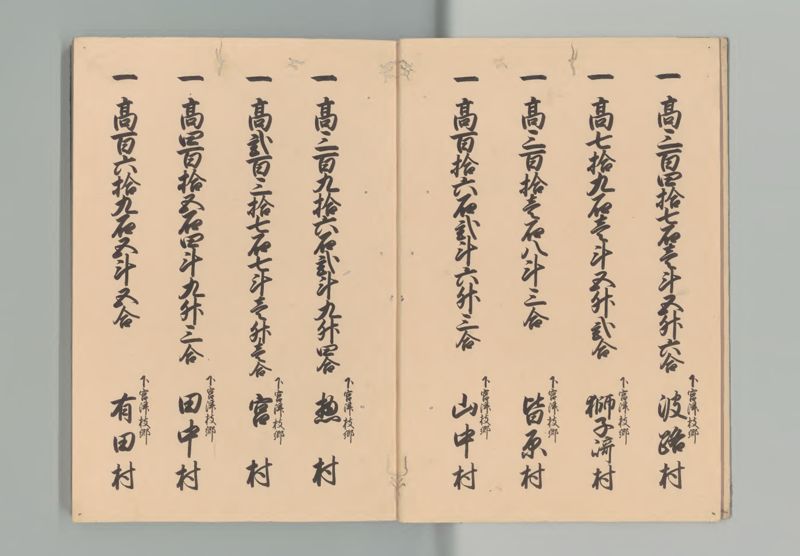 一 高三百四拾七石壱斗五升六合 下宮津枝郷 波路村
一 高七拾九石壱斗五升弐合 下宮津枝郷 獅子崎村
一 高三百拾壱石八斗三合 下宮津枝郷 皆原村
一 高百拾六石弐斗六升三合 下宮津枝郷 山中村
一 高三百九拾六石弐斗九升四合 惣村
一 高弐百三拾七石七斗壱升壱合 下宮津枝郷 宮村
一 高四百拾五石四斗九升三合 下宮津枝郷 田中村
一 高百六拾九石五斗五合 下宮津枝郷 有田村